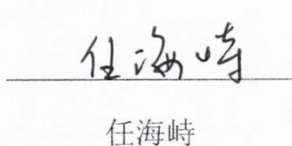 任海峙
任海峙